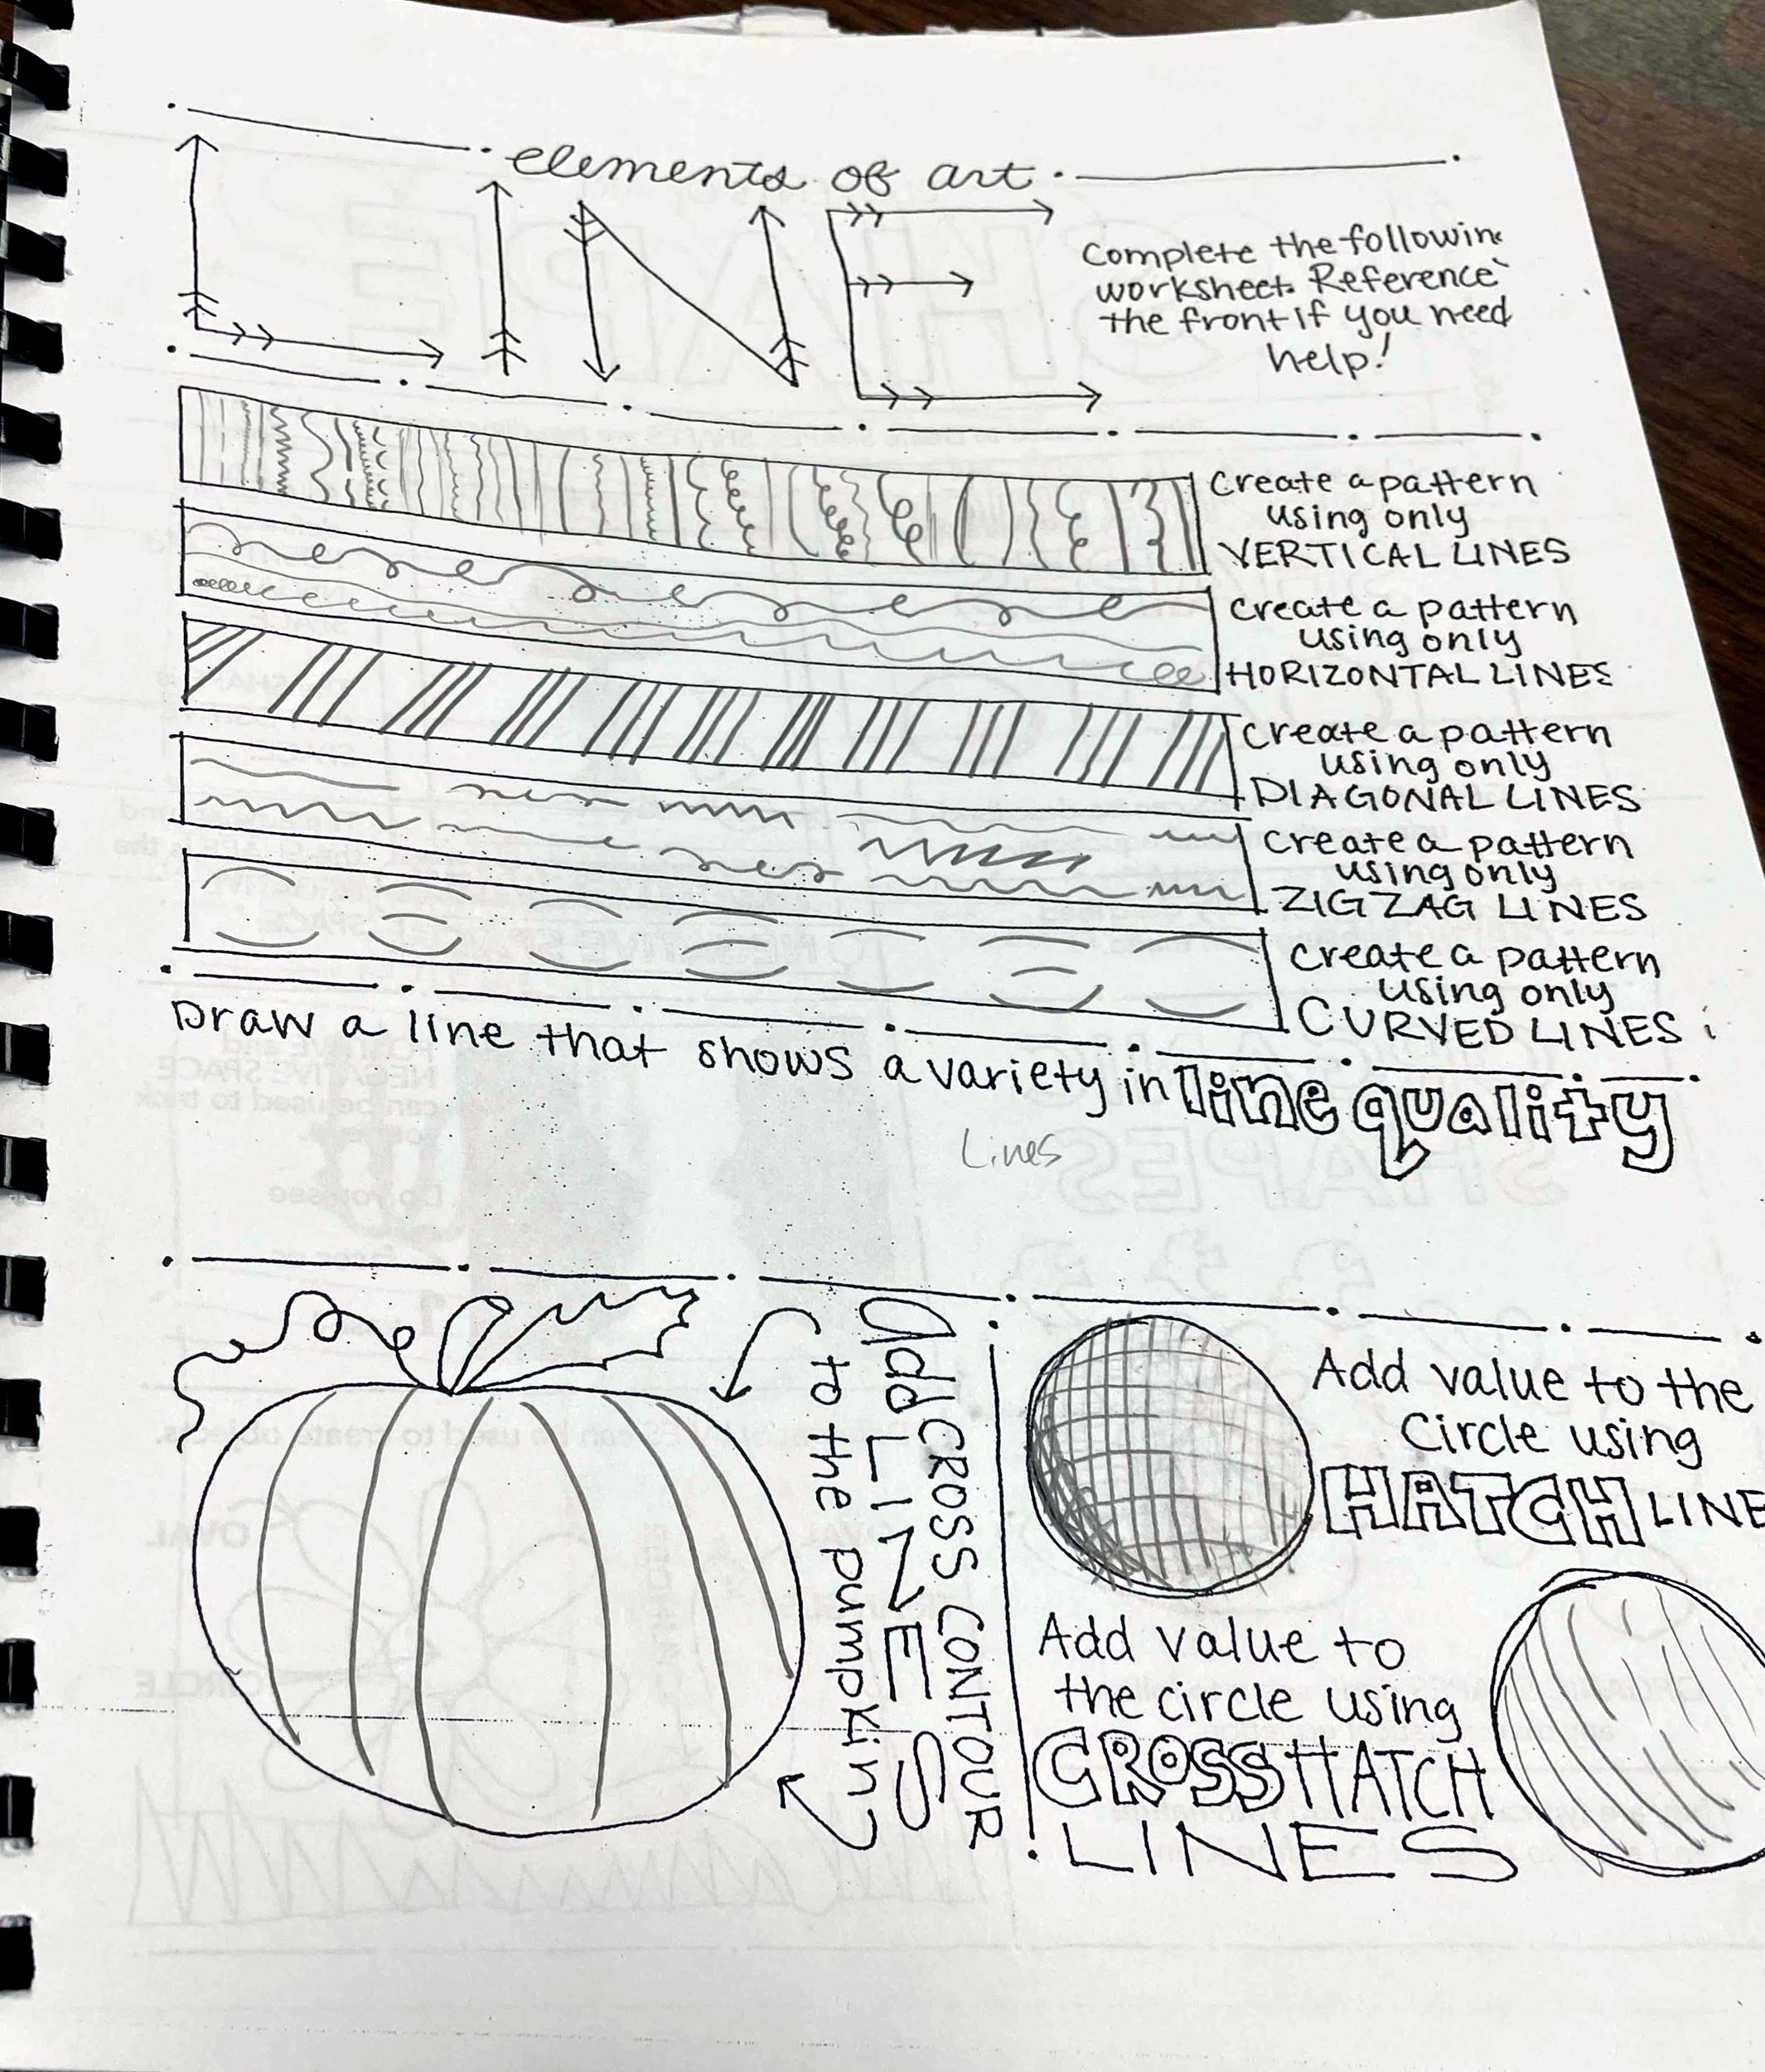 elements of art
LINE
Complete the followin
worksheet. Reference
the front if you need
help!
Create a pattern
using only
VERTICAL LINES
Create a pattern
using only
HORIZONTAL LINES
Create a pattern
using only
DIAGONAL LINES
Create a pattern
using only
ZIGZAG LINES
Create a pattern
using only
CURVED LINES
Draw a line that shows a variety in line quality
Lines
Add CROSS CONTOUR
LINES
to the pumpkin
Add value to the
Circle using
HATCH LINE
Add value to
the circle using
CROSSHATCH
LINES